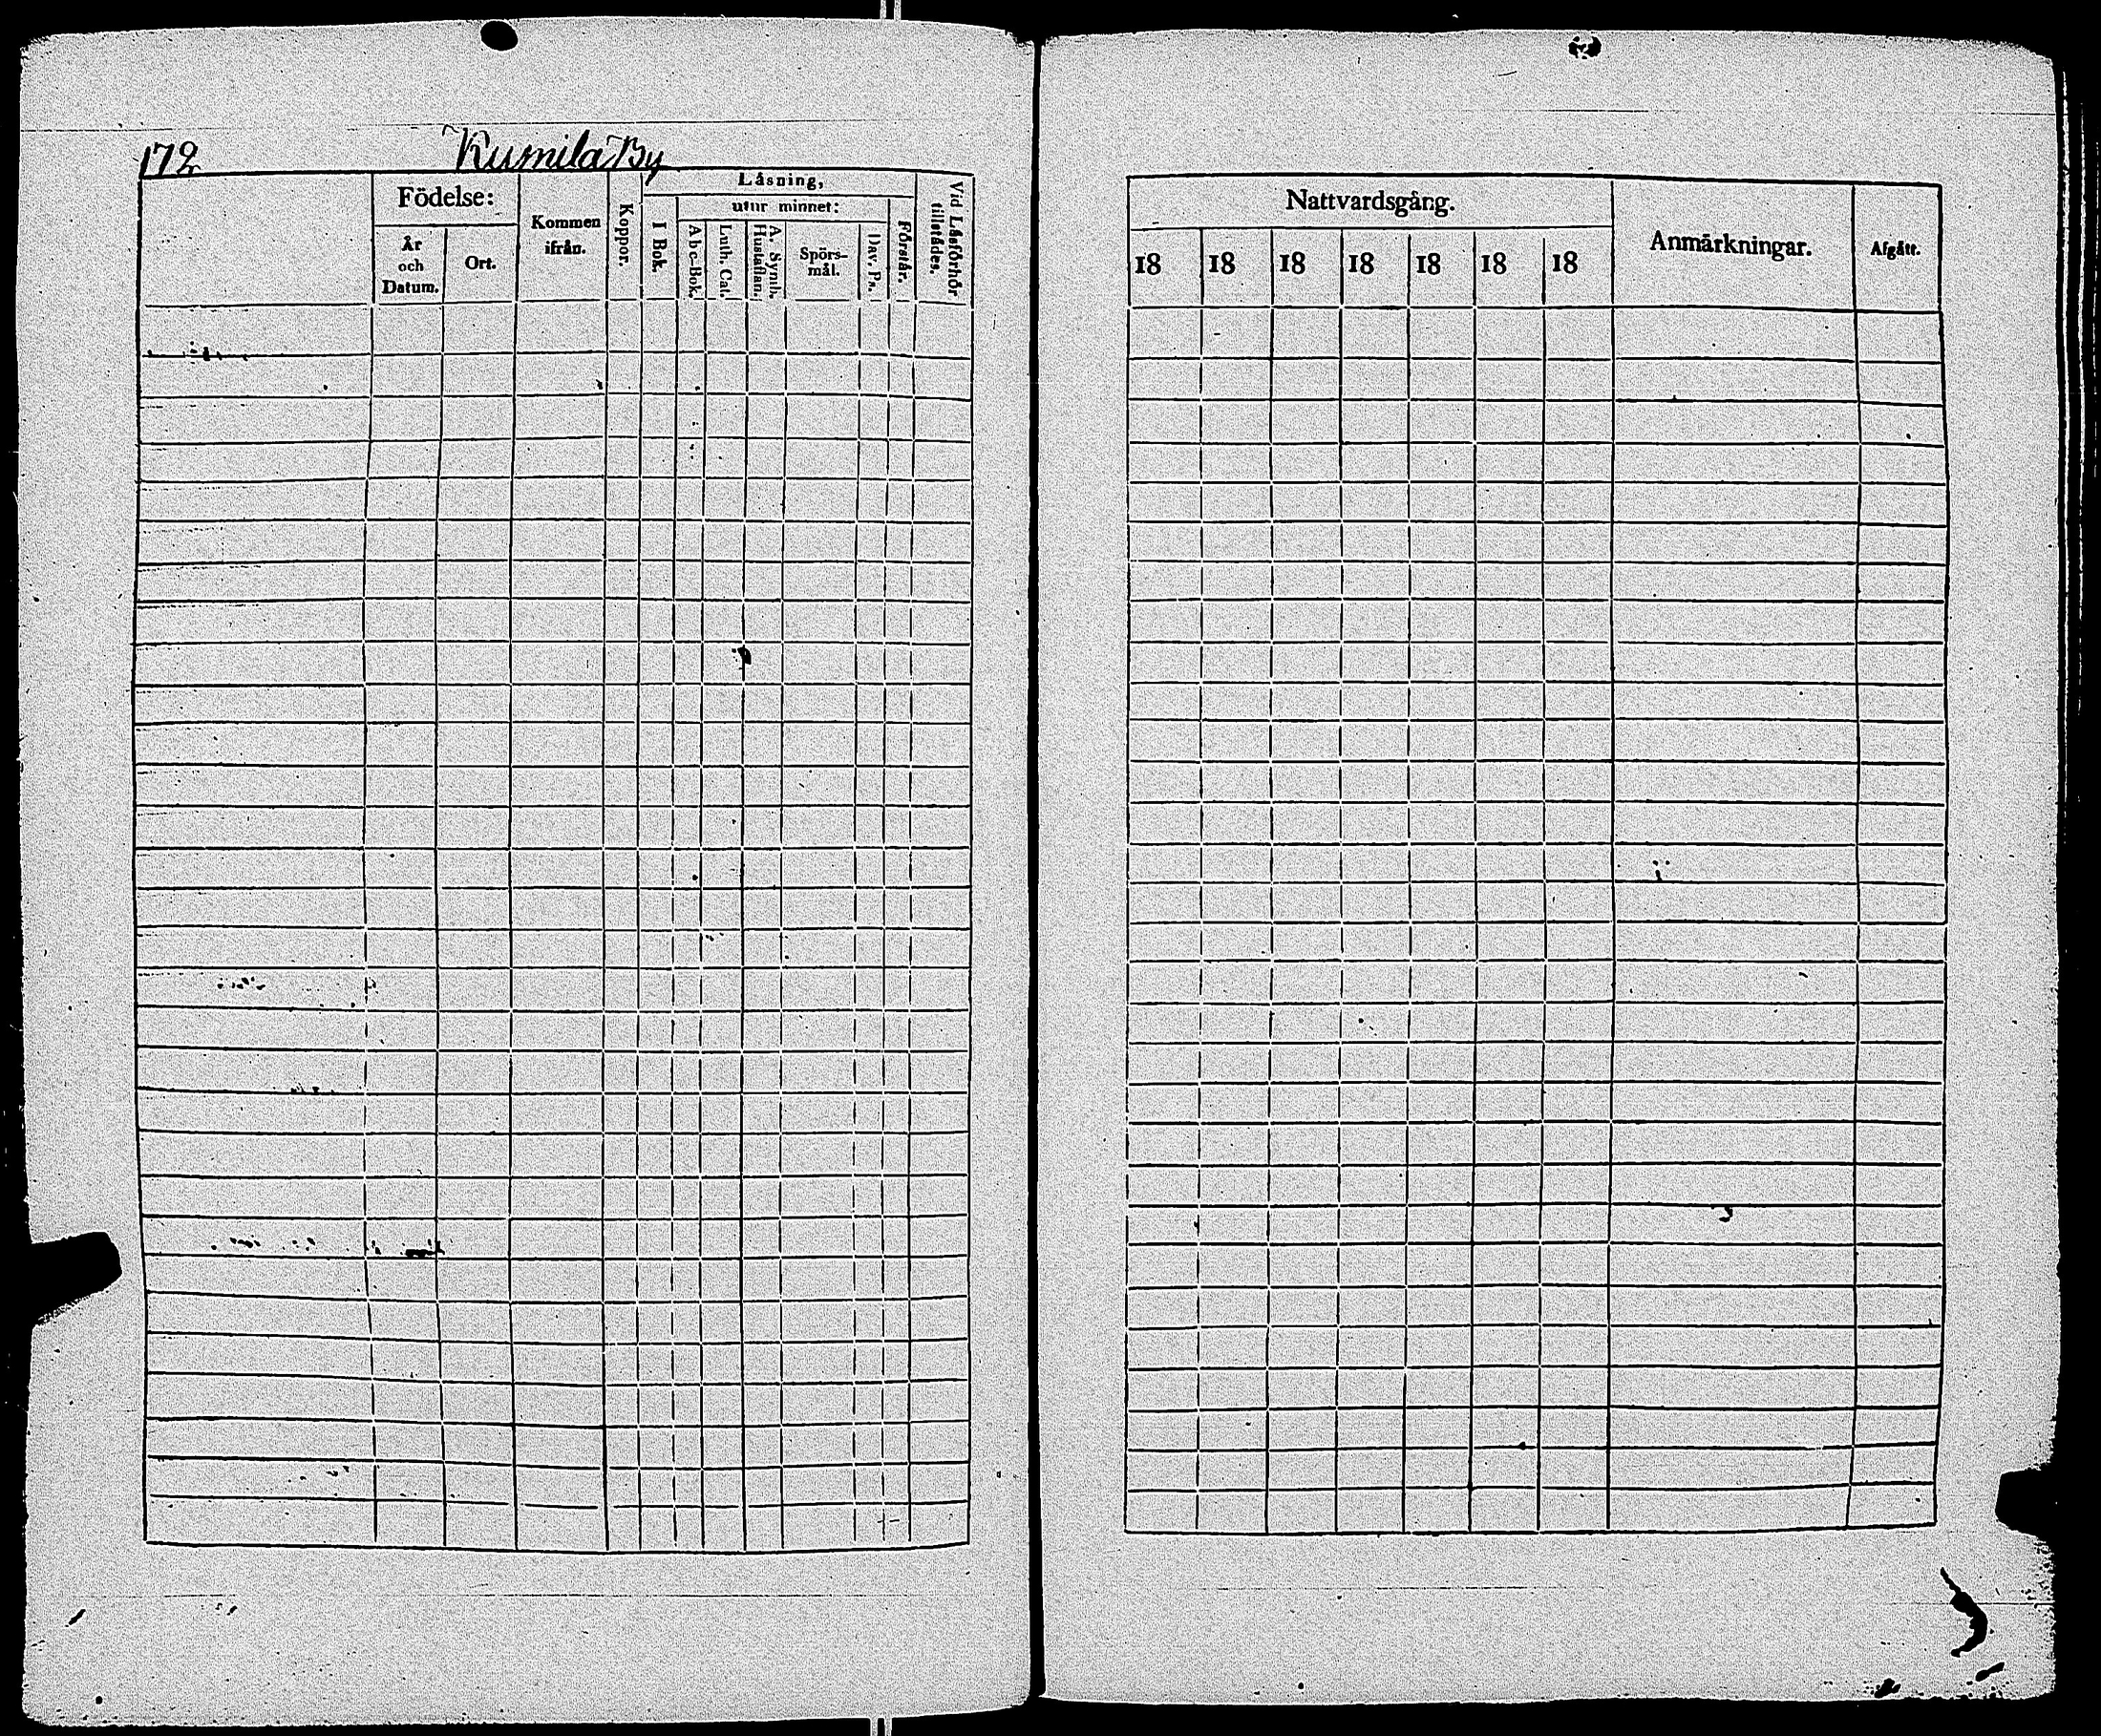 172 Kumila By
Födelse:
År och Datum.
Ort.
Kommen ifrån.
Koppor.
Låsning,
I Bok.
utur minnet:
Abc-Bok.
Luth. Cat.
A. Symb. Hustaflan.
Spörs-mål.
Dav. Ps.
Förstår.
Vid Låsförhör tillstådes.
Nattvardsgång.
18 18 18 18 18 18 18
Anmärkningar.
Afgått.